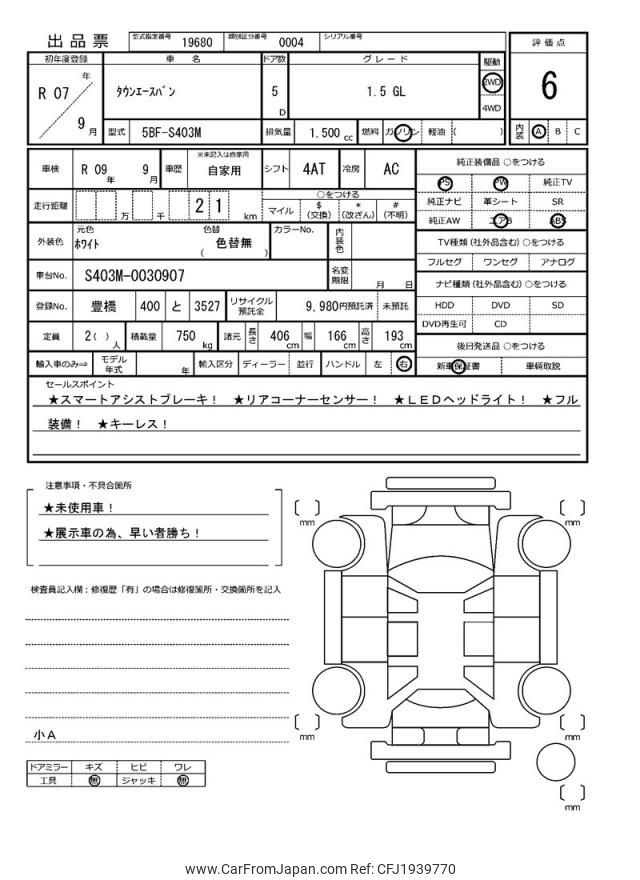 出品票 型式指定番号 19680 類別区分番号 0004 シリアル番号
評価点
6
内装 A B C
初年度登録 車名 ドア数 グレード 駆動
R 07 年 9 月 タウンエースバン 5 D 1.5 GL 2WD 4WD
型式 5BF-S403M 排気量 1,500 cc 燃料 ガソリン 軽油 ( )
車検 R 09 年 9 月 車歴 ※未記入は自家用 自家用 シフト 4AT 冷房 AC
走行距離 万 千 2 1 km ○をつける
マイル $ (交換) * (改ざん) # (不明)
外装色 元色 ホワイト 色替 ( 色替無 ) カラーNo. 内装色
車台No. S403M-0030907 名変期限 月 日
登録No. 豊橋 400 と 3527 リサイクル預託金 9,980円預託済 未預託
定員 2( ) 人 積載量 750 kg 諸元 長さ 406 cm 幅 166 cm 高さ 193 cm
輸入車のみ⇒ モデル年式 年 輸入区分 ディーラー 並行 ハンドル 左 右
純正装備品 ○をつける
PS PW 純正TV
純正ナビ 革シート SR
純正AW エアB ABS
TV種類 (社外品含む) ○をつける
フルセグ ワンセグ アナログ
ナビ種類 (社外品含む) ○をつける
HDD DVD SD
DVD再生可 CD
後日発送品 ○をつける
新車保証書 車輌取説
セールスポイント
★スマートアシストブレーキ！ ★リアコーナーセンサー！ ★LEDヘッドライト！ ★フル
装備！ ★キーレス！
注意事項・不具合箇所
★未使用車！
★展示車の為、早い者勝ち！
検査員記入欄：修復歴「有」の場合は修復箇所・交換箇所を記入
小A
ドアミラー キズ ヒビ ワレ
工具 無 ジャッキ 無
mm mm
mm mm
mm
www.CarFromJapan.com Ref: CFJ1939770